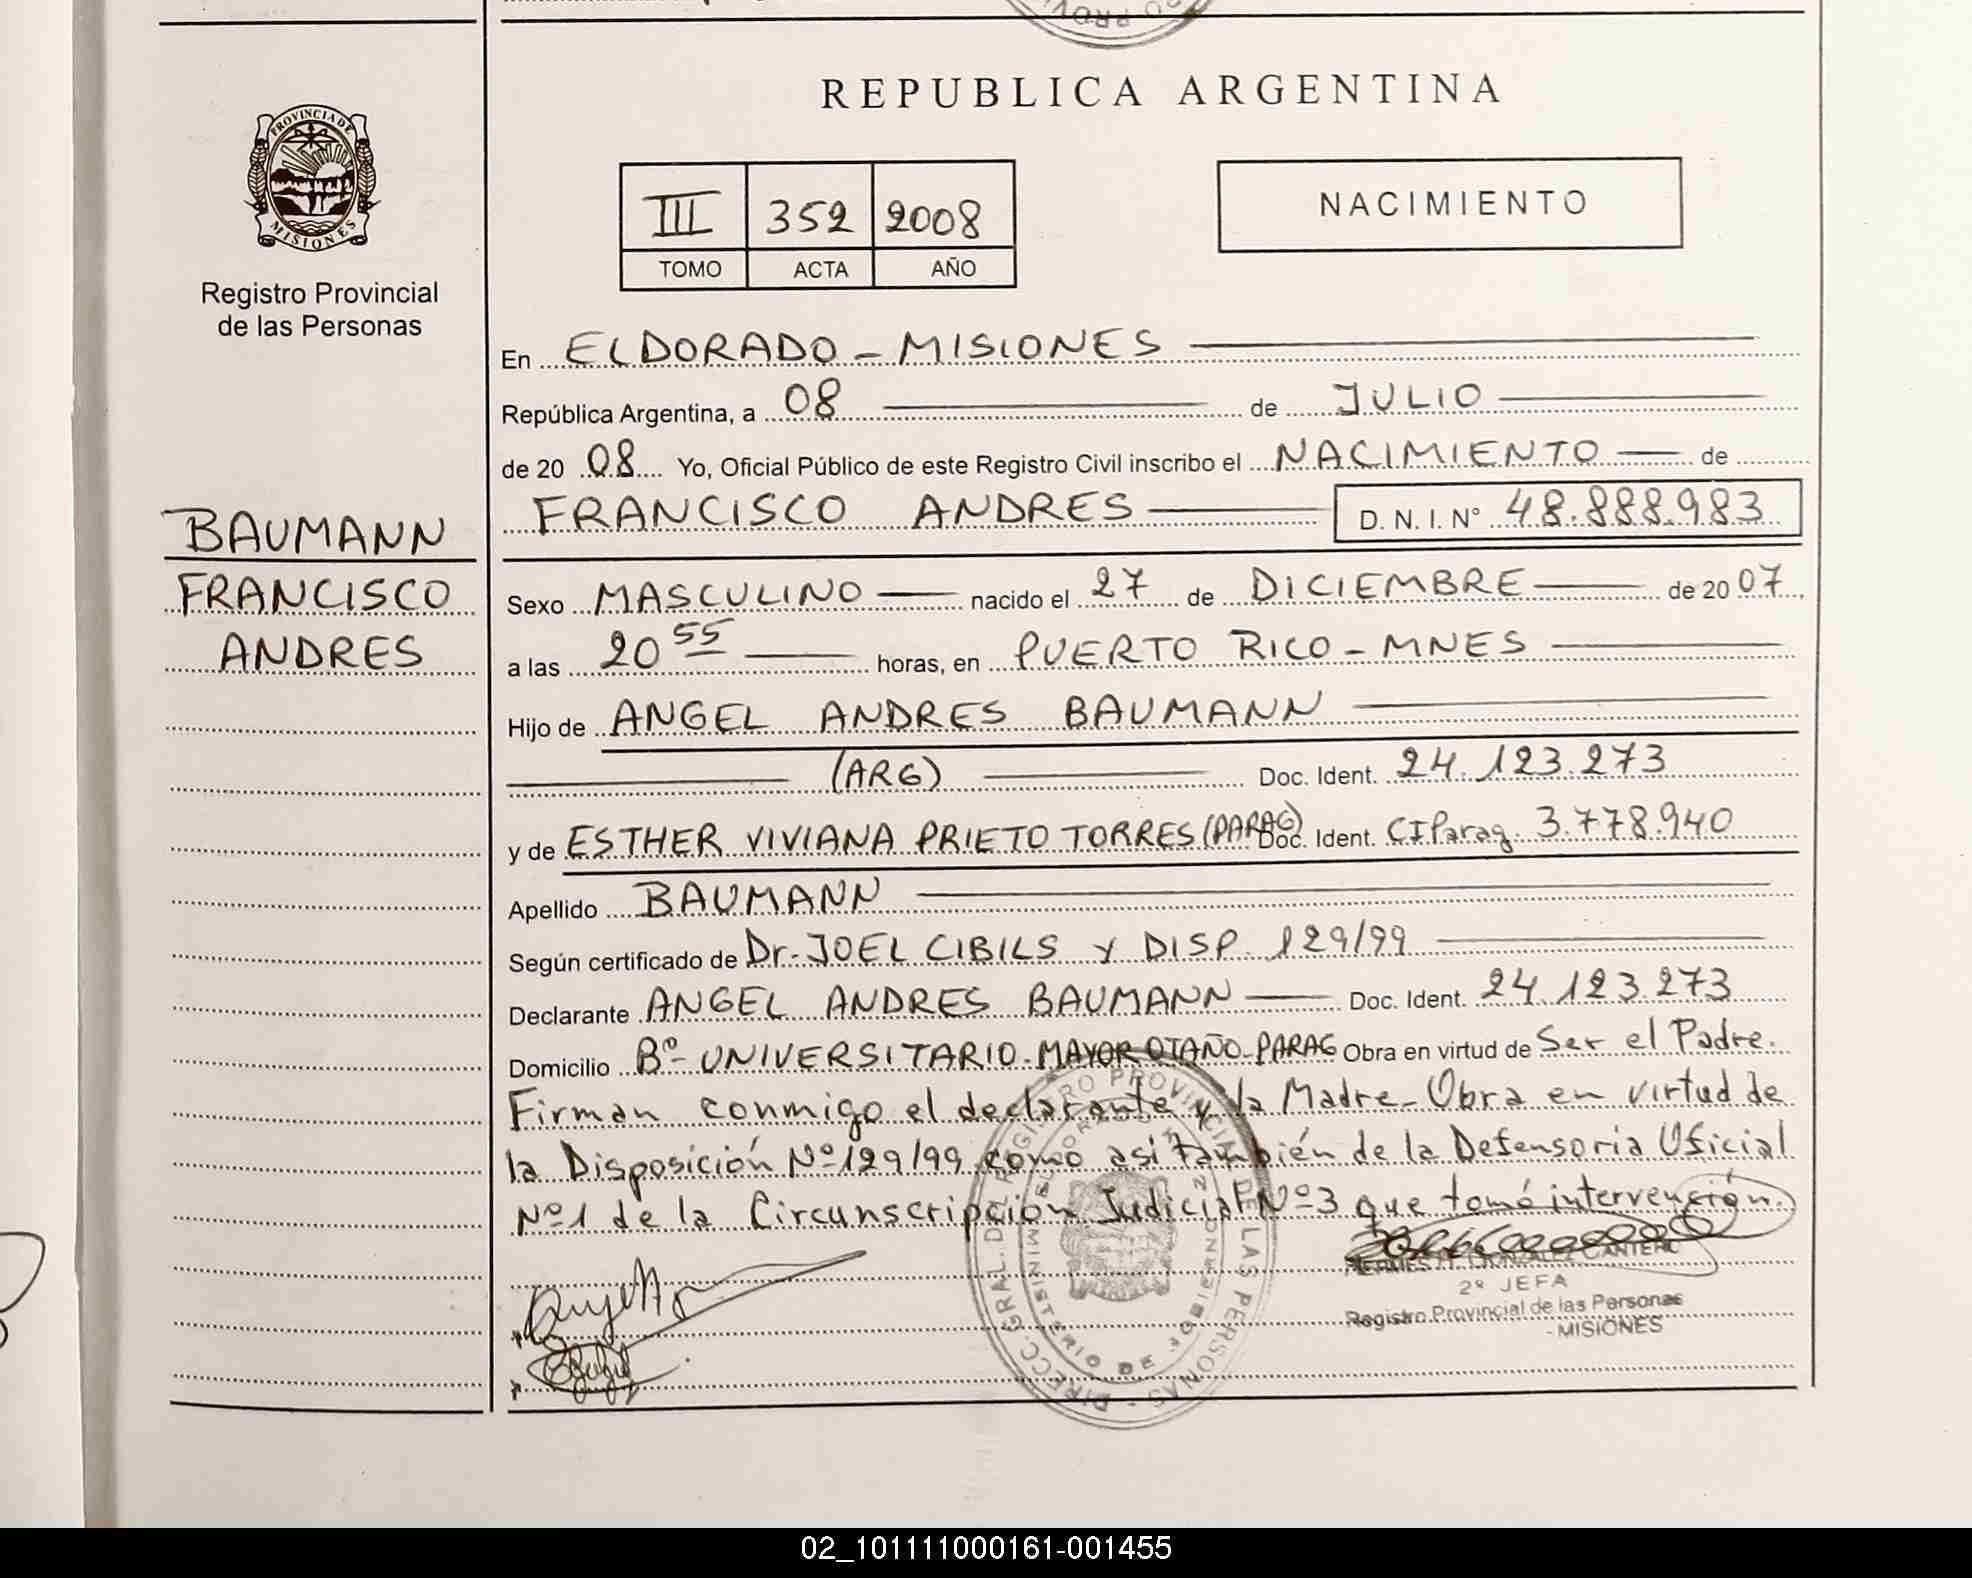 REPUBLICA ARGENTINA
PROVINCIA DE MISIONES
Registro Provincial
de las Personas
III 352 2008
TOMO ACTA AÑO
NACIMIENTO
BAUMANN
FRANCISCO
ANDRES
En ELDORADO - MISIONES
República Argentina, a 08 de JULIO
de 20 08 Yo, Oficial Público de este Registro Civil inscribo el NACIMIENTO de
FRANCISCO ANDRES D. N. I. Nº 48.888.983
Sexo MASCULINO nacido el 27 de DICIEMBRE de 20 07
a las 20 55 horas, en PUERTO RICO - MNES
Hijo de ANGEL ANDRES BAUMANN
(ARG) Doc. Ident. 24.123.273
y de ESTHER VIVIANA PRIETO TORRES (PARAG) Doc. Ident. CI Parag. 3.778.940
Apellido BAUMANN
Según certificado de Dr. JOEL CIBILS Y DISP. 129/99
Declarante ANGEL ANDRES BAUMANN Doc. Ident. 24.123.273
Domicilio Bº- UNIVERSITARIO - MAYOR OTAÑO - PARAG Obra en virtud de Ser el Padre.
Firman conmigo el declarante y la Madre - Obra en virtud de
la Disposición Nº 129/99 como así también de la Defensoria Oficial
Nº 1 de la Circunscripción Judicial Nº 3 que tomó intervención.
2º JEFA
Registro Provincial de las Personas
- MISIONES
DIRECC. GRAL. DEL REGISTRO PROVINCIAL DE LAS PERSONAS -
MINISTERIO DE GOBIERNO
02_101111000161-001455